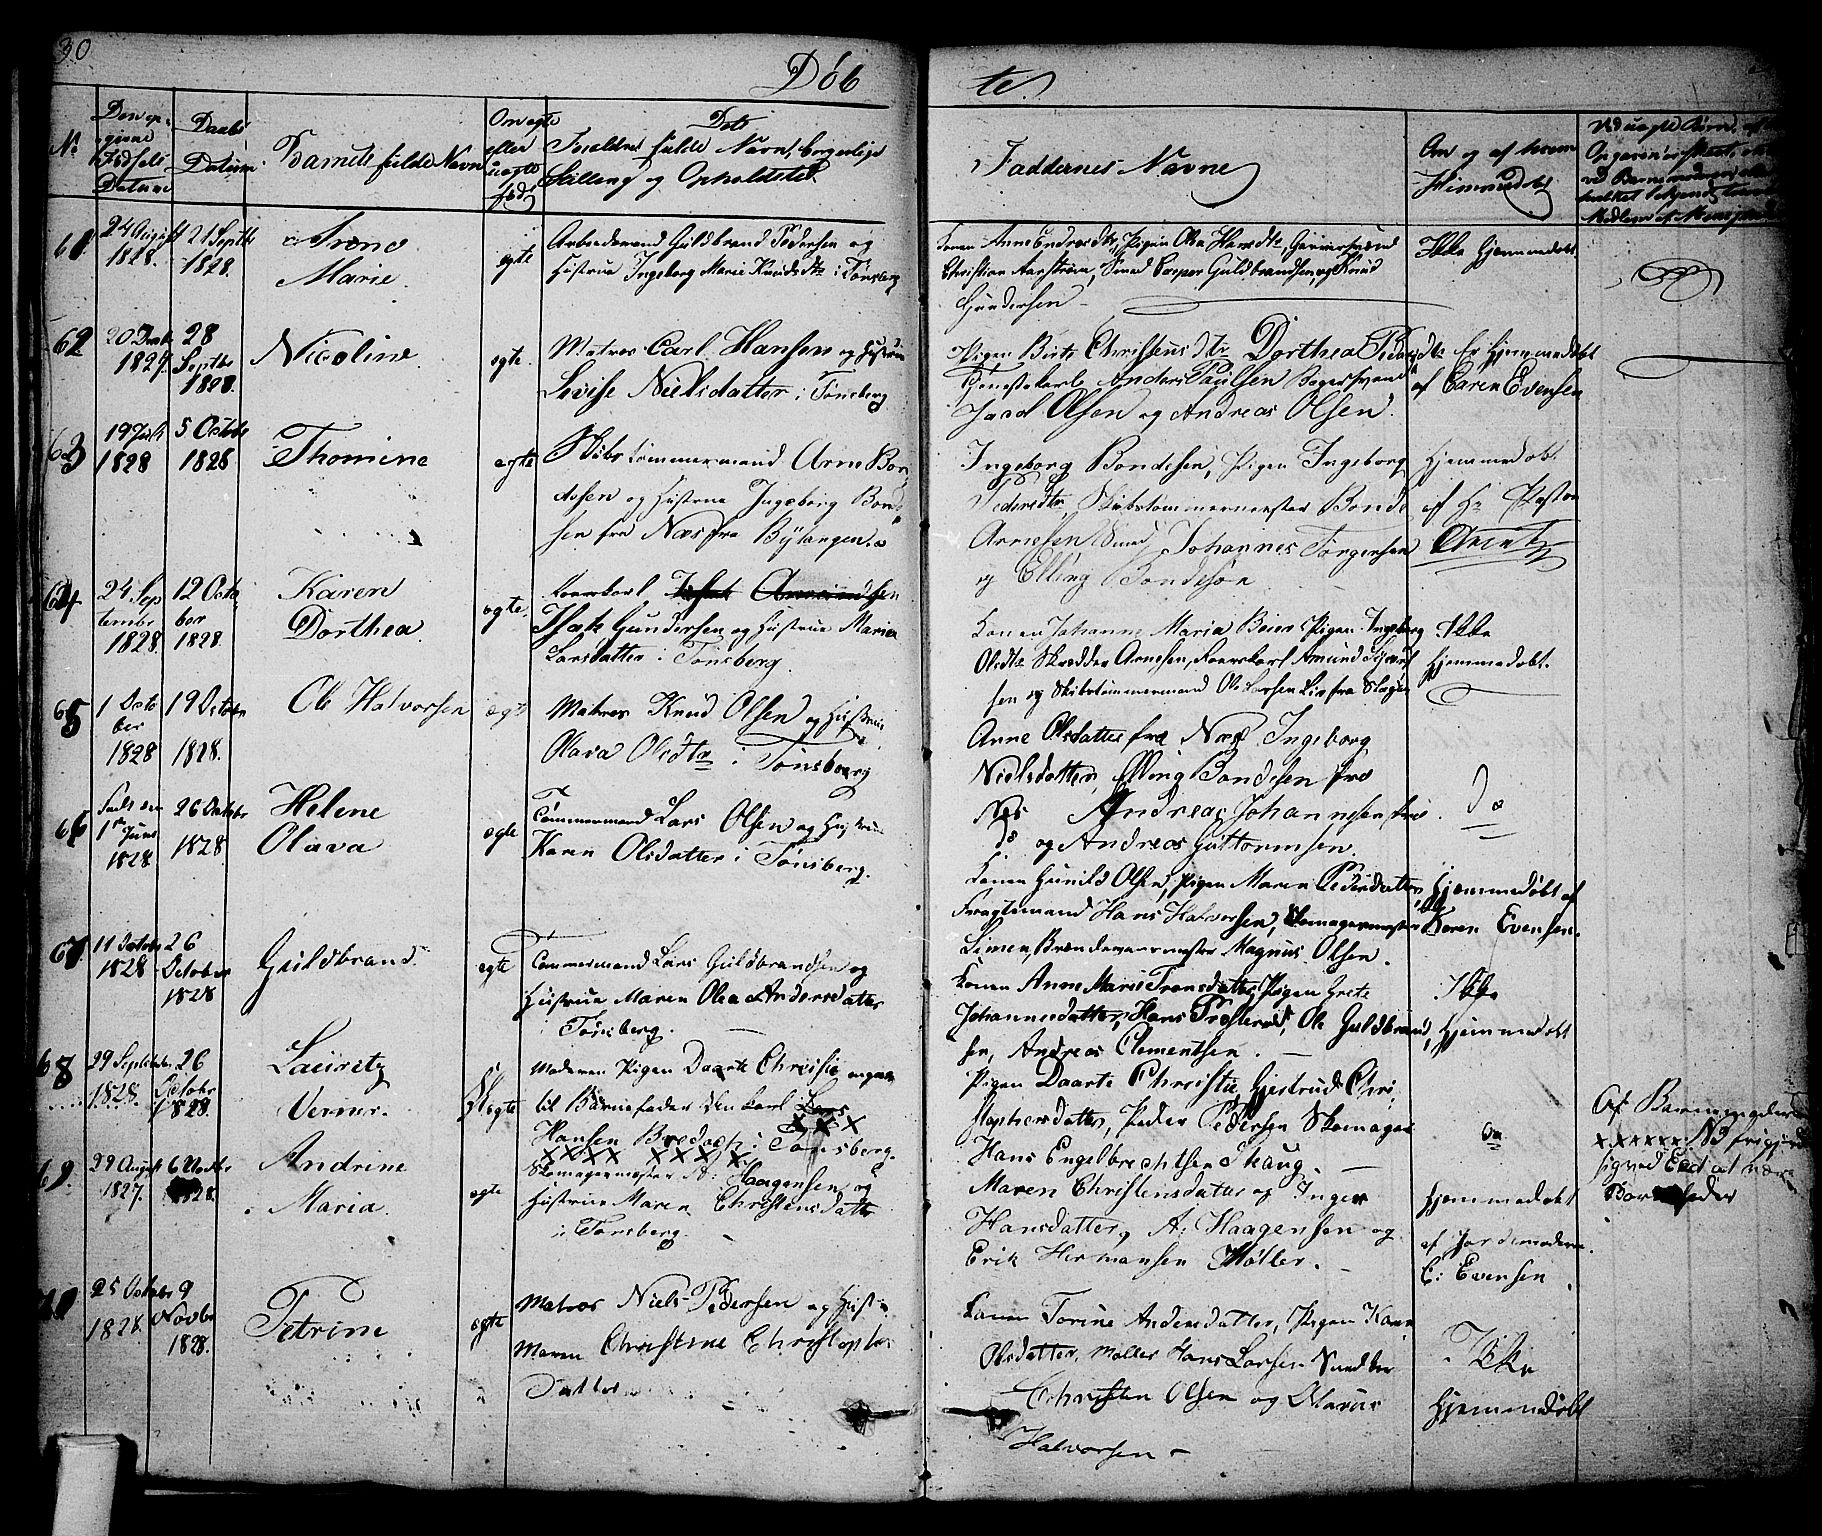 30
Døbte
No
Den opgivne Fødsels Datum
Daabs Datum
Barnets fulde Navn
Om egte eller uegte fød
Forældres fulde Navn, borgerlige Stilling og Opholdsted
Faddernes Navne
Om og af hvem Hiemmedøbt
61.
24 August 1828.
21 Septbr 1828.
Marie
egte
Arbeidsmand Guldbrand Pedersen og
Hustrue Ingeborg Marie Knudsdtr i Tønsberg
Konen Anne Endresdtr, Pigen Olea Hansdtr,
Christian Aarstrøm, Smed Casper Guldbrandsen, og Knud
Gundersen
Ikke Hjemmedøbt
62
1827.
28 Septbr 1828.
Nicoline
egte.
Matros Carl Hansen og Hustrue
Lovise Nielsdatter i Tønsberg
Pigen Birte Christensdtr Dorthea Pedersdtr
Tjenestekarl Anders Paulsen Bogersvend
Jacob Olsen og Andreas Olsen.
Er Hjemmedøbt
af Caren Evensen
63
19 Juli 1828
5 Octobr 1828
Thomine
egte
Skibstømmermand Arne Bon-
desen og Hustrue Ingeborg Bonde-
sen fra Næs fra Bylangen.
Ingeborg Bondesen, Pigen Ingeborg
Pedersdtr, Skibstømmermester Bonde
Arnesen Smed, Johannes Jørgensen
og Elling Bondesøn
Hjemmedøbt.
af Hr Pastor
Arent
64
24 September 1828
12 October 1828.
Karen
Dorthea
egte.
Isak Gundersen og Hustrue Maria
Larsdatter i Tønsberg.
Konen Johanne Maria Beier Pigen Ingeborg
Olsdtr Skrædder Arnesen, Amund
sen og Skibstømmermand Ole Larsen fra Slagen
Ikke
Hjemmedøbt.
65
1 October 1828
19 Octobr 1828.
Ole Halvorsen
egte
Matros Knud Olsen og Hustrue
Olava Olsdtr i Tønsberg
Anne Olsdatter fra Næs Ingeborg
Nielsdatter, Elling Bondesen fra
Næs Andreas Johannesen fra
do og Andreas Guttormsen.
do
66
1ste Juni 1828.
26 Octobr 1828
Helene
Olava
egte
Tømmermand Lars Olsen og Hustrue
Karen Olsdatter i Tønsberg.
Konen Gunild Olsen, Pigen Maren Pedersdatter,
Fragtemand Hans Halvorsen, Skomagermester
Simen, Brøndevarmester Magnus Olsen.
Hjemmedøbt af
Karen Evensen.
67.
11 Octobr 1828
26 October 1828
Guldbrand
egte
Tømmermand Lars Guldbrandsen og
Hustrue Maren Olea Andersdatter
i Tønsberg.
Konen Anne Marie Transdatter, Pigen Grete
Johannesdatter, Hans Præsterød, Ole Guldbrand-
sen, Andreas Clementsen.
Ikke
Hjemmedøbt
68
29 September 1828.
26 Octobr 1828.
Lauritz
Verner.
Uegte
Moderen Pigen Daarte Christie angav
til Barnefader Ungkarl Lars
Hansen Bredsep i Tønsberg.
Pigen Daarte Christie, Gjertrud Chri-
stophersdatter, Peder Pedersen Skomager
Hans Engelbrechtsen Skaug.
do
Af Barnemoderen
×××××× NB frigjorde
sig ved Eed at være
Barnefader
69.
29 August 1827.
6 Novbr 1828.
Andrine
Maria.
egte
Skomagermester A: Haagensen og
Hustrue Maren Christensdatter
i Tønsberg.
Maren Christensdatter og Inger
Hansdatter, A: Haagensen og
Erik Hermansen Møller.
Hjemmedøbt
af Jordemoderen
C: Evensen.
70
25 Octobr 1828.
9 Novbr 1828.
Petrine
egte
Matros Niels Pedersen og Hustrue
Maren Christine Christophers
Datter
Konen Torine Andersdatter, Pigen Karen
Olsdatter, Møller Hans Larsen
Christen Olsen og Marius
Halvorsen
Ikke
Hjemmedøbt